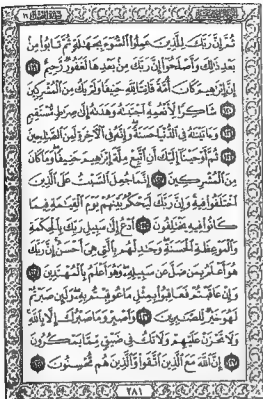 ثُمَّ إِنَّ رَبَّكَ لِلَّذِينَ عَمِلُوا۟ ٱلسُّوٓءَ بِجَهَٰلَةٍ ثُمَّ تَابُوا۟ مِنۢ
بَعْدِ ذَٰلِكَ وَأَصْلَحُوٓا۟ إِنَّ رَبَّكَ مِنۢ بَعْدِهَا لَغَفُورٌ رَّحِيمٌ ١١٩
إِنَّ إِبْرَٰهِيمَ كَانَ أُمَّةً قَانِتًا لِّلَّهِ حَنِيفًا وَلَمْ يَكُ مِنَ ٱلْمُشْرِكِينَ
١٢٠ شَاكِرًا لِّأَنْعُمِهِ ٱجْتَبَىٰهُ وَهَدَىٰهُ إِلَىٰ صِرَٰطٍ مُّسْتَقِيمٍ
١٢١ وَءَاتَيْنَٰهُ فِى ٱلدُّنْيَا حَسَنَةً وَإِنَّهُۥ فِى ٱلْءَاخِرَةِ لَمِنَ ٱلصَّٰلِحِينَ
١٢٢ ثُمَّ أَوْحَيْنَآ إِلَيْكَ أَنِ ٱتَّبِعْ مِلَّةَ إِبْرَٰهِيمَ حَنِيفًا وَمَا كَانَ
مِنَ ٱلْمُشْرِكِينَ ١٢٣ إِنَّمَا جُعِلَ ٱلسَّبْتُ عَلَى ٱلَّذِينَ
ٱخْتَلَفُوا۟ فِيهِ وَإِنَّ رَبَّكَ لَيَحْكُمُ بَيْنَهُمْ يَوْمَ ٱلْقِيَٰمَةِ فِيمَا
كَانُوا۟ فِيهِ يَخْتَلِفُونَ ١٢٤ ٱدْعُ إِلَىٰ سَبِيلِ رَبِّكَ بِٱلْحِكْمَةِ
وَٱلْمَوْعِظَةِ ٱلْحَسَنَةِ وَجَٰدِلْهُم بِٱلَّتِى هِىَ أَحْسَنُ إِنَّ رَبَّكَ
هُوَ أَعْلَمُ بِمَن ضَلَّ عَن سَبِيلِهِۦ وَهُوَ أَعْلَمُ بِٱلْمُهْتَدِينَ ١٢٥
وَإِنْ عَاقَبْتُمْ فَعَاقِبُوا۟ بِمِثْلِ مَا عُوقِبْتُم بِهِۦ وَلَئِن صَبَرْتُمْ
لَهُوَ خَيْرٌ لِّلصَّٰبِرِينَ ١٢٦ وَٱصْبِرْ وَمَا صَبْرُكَ إِلَّا بِٱللَّهِ
وَلَا تَحْزَنْ عَلَيْهِمْ وَلَا تَكُ فِى ضَيْقٍ مِّمَّا يَمْكُرُونَ
١٢٧ إِنَّ ٱللَّهَ مَعَ ٱلَّذِينَ ٱتَّقَوا۟ وَّٱلَّذِينَ هُم مُّحْسِنُونَ ١٢٨
٢٨١